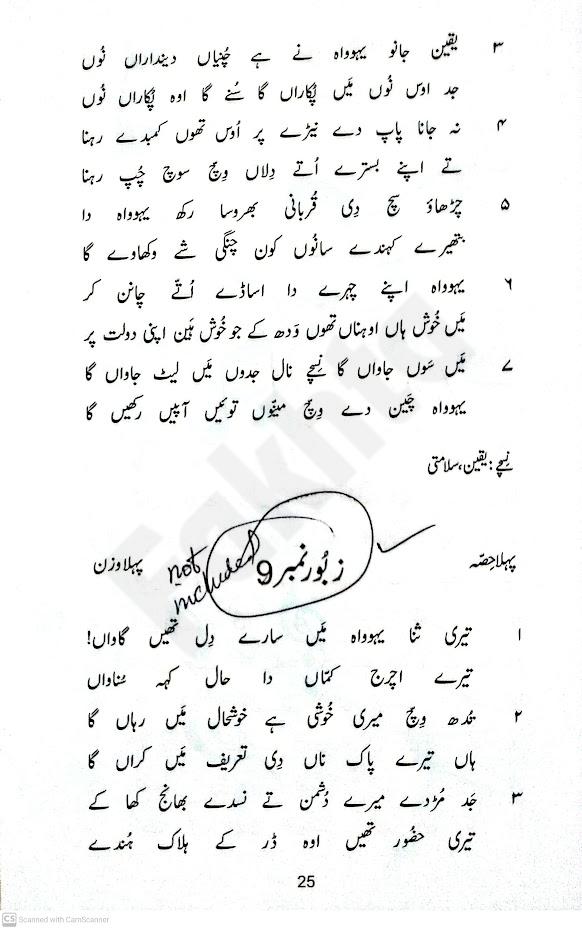 ۳ یقین جانو یہوواہ نے ہے چُنیاں دینداراں نُوں
جد اوس نُوں مَیں پُکاراں گا سُنے گا اوہ پُکاراں نُوں
۴ نہ جانا پاپ دے نیڑے پر اُوس تھوں کمبدے رہنا
تے اپنے بسترے اُتے دِلاں وِچ سوچ چُپ رہنا
۵ چڑھاؤ سچ دِی قُربانی بھروسا رکھ یہوواہ دا
بتھیرے کہندے سانُوں کون چنگی شے وکھاوے گا
۶ یہوواہ اپنے چہرے دا اساڈے اُتّے چانن کر
مَیں خُوش ہاں اوہناں تھوں وَدھ کے جو خُوش ہَین اپنی دولت پر
۷ مَیں سَوں جاواں گا نِسچے نال جدوں مَیں لیٹ جاواں گا
یہوواہ چَین دے وِچ مینُوں تُوئیں آپیں رکھیں گا
نِسچے: یقین، سلامتی
زبُور نمبر 9
not included
پہلا حِصّہ
پہلا وزن
۱ تیری ثنا یہوواہ مَیں سارے دِل تھیں گاواں!
تیرے اچرج کمّاں دا حال کہہ سُناواں
۲ تُدھ وِچ میری خُوشی ہے خوشحال مَیں رہاں گا
ہاں تیرے پاک ناں دِی تعریف مَیں کراں گا
۳ جَد مُڑدے میرے دُشمن تے نسدے بھانج کھا کے
تیری حضُور تھیں اوہ ڈر کے ہلاک ہُندے
25
Fakhta
CS Scanned with CamScanner